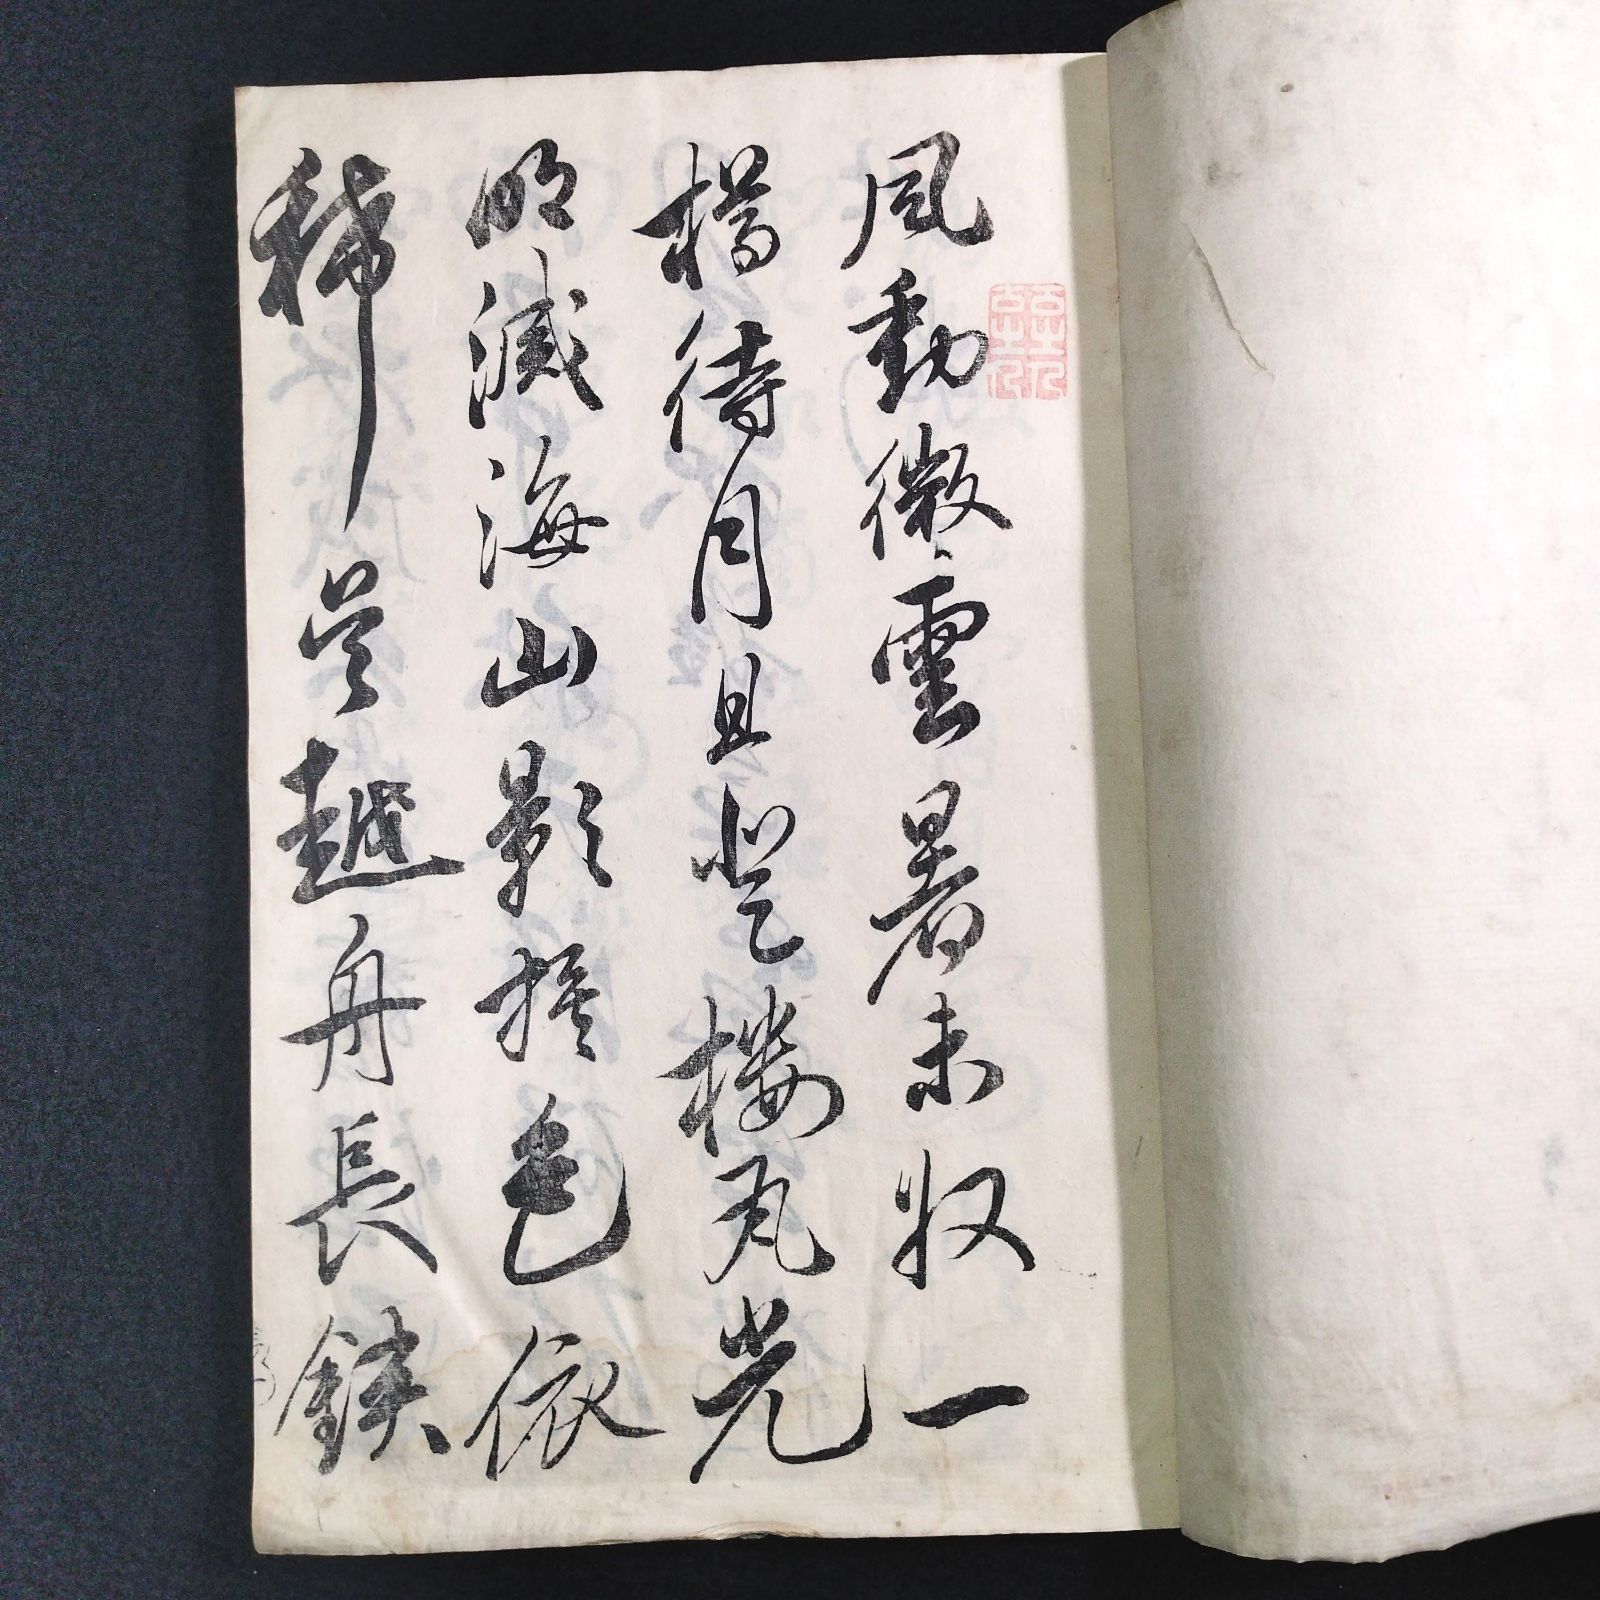 風動微雲暑未收一
樽待月且登樓風光
明滅海山影樹色依
稀吳越舟長鋏